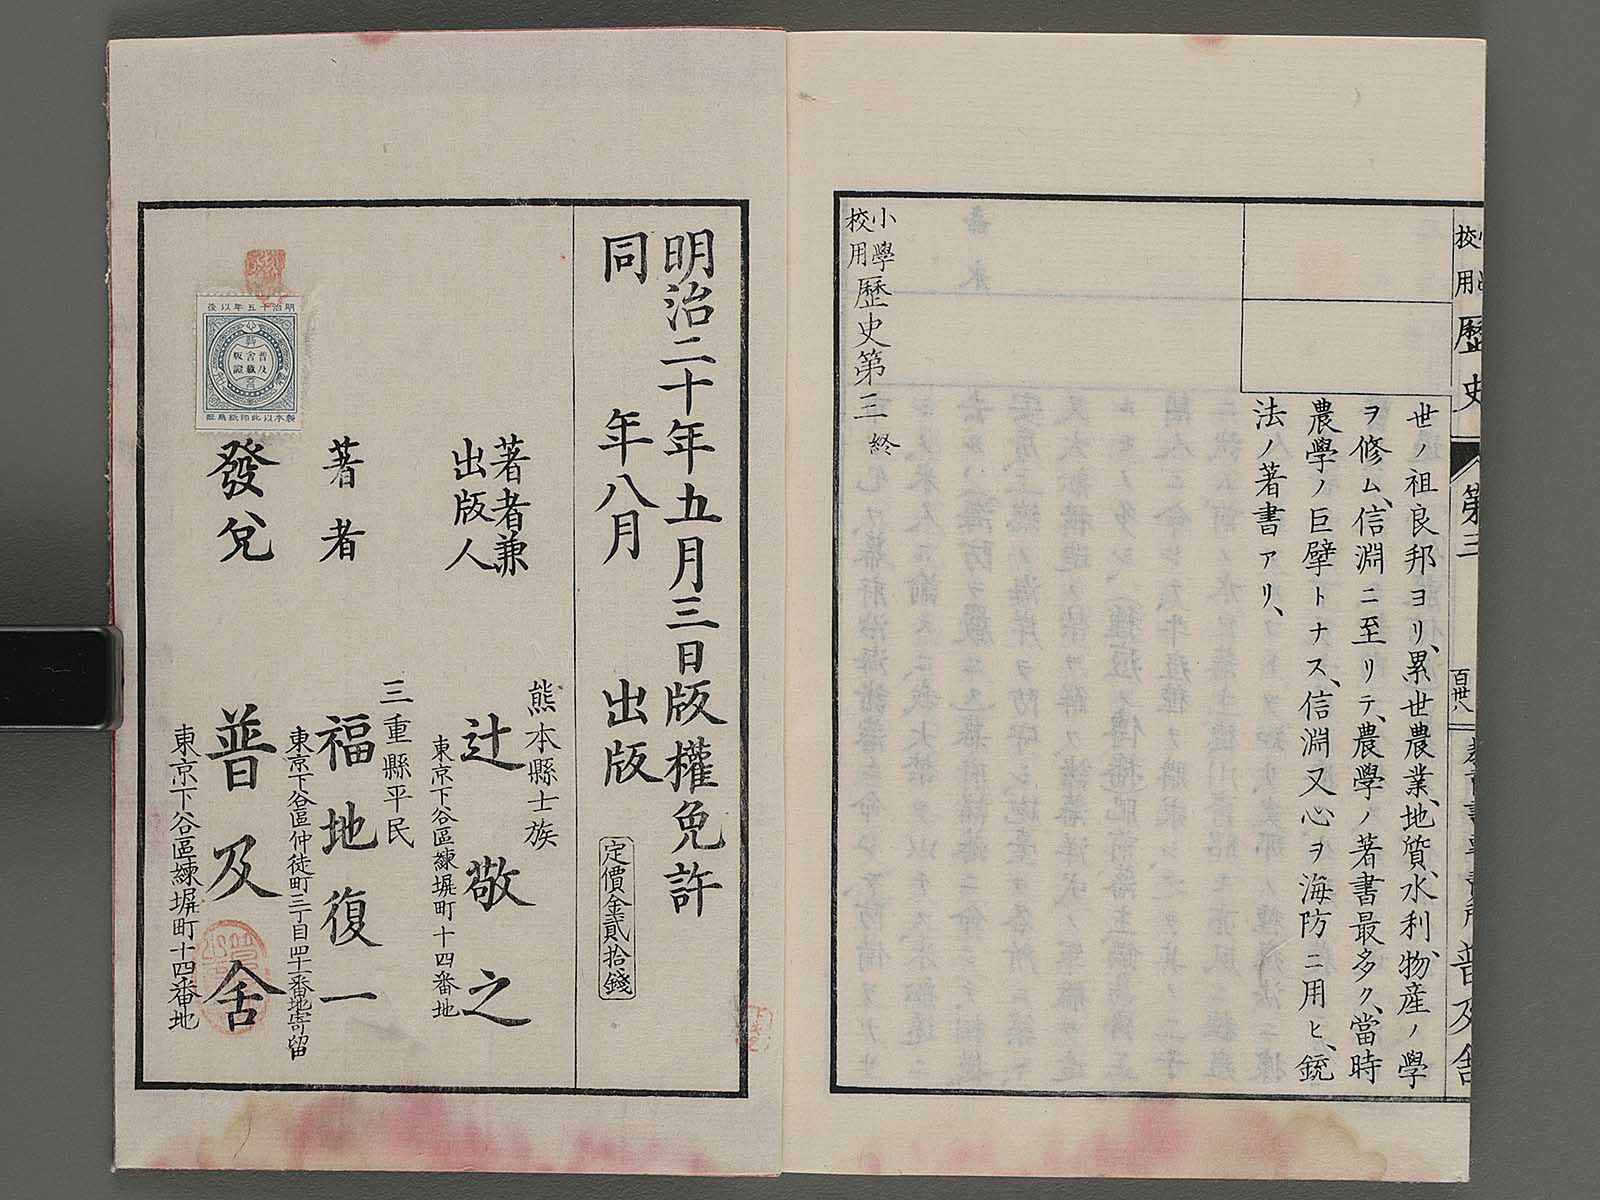 世ノ祖良邦ヨリ、累世農業、地質、水利、物産ノ學
ヲ修ム、信淵ニ至リテ、農學ノ著書最多ク、當時
農學ノ巨擘トナス、信淵又心ヲ海防ニ用ヒ、銃
法ノ著書アリ、
小學
校用
歷史第三 終
歷史
第三
普及舍
明治二十年五月三日版權免許
同 年八月 出版
定價金貳拾錢
著者兼
出版人
熊本縣士族
辻敬之
東京下谷區練塀町十四番地
著者
三重縣平民
福地復一
東京下谷區仲徒町三丁目四十一番地寄留
發兌
普及舍
東京下谷區練塀町十四番地
明治十五年以後
普及
舍藏
版證